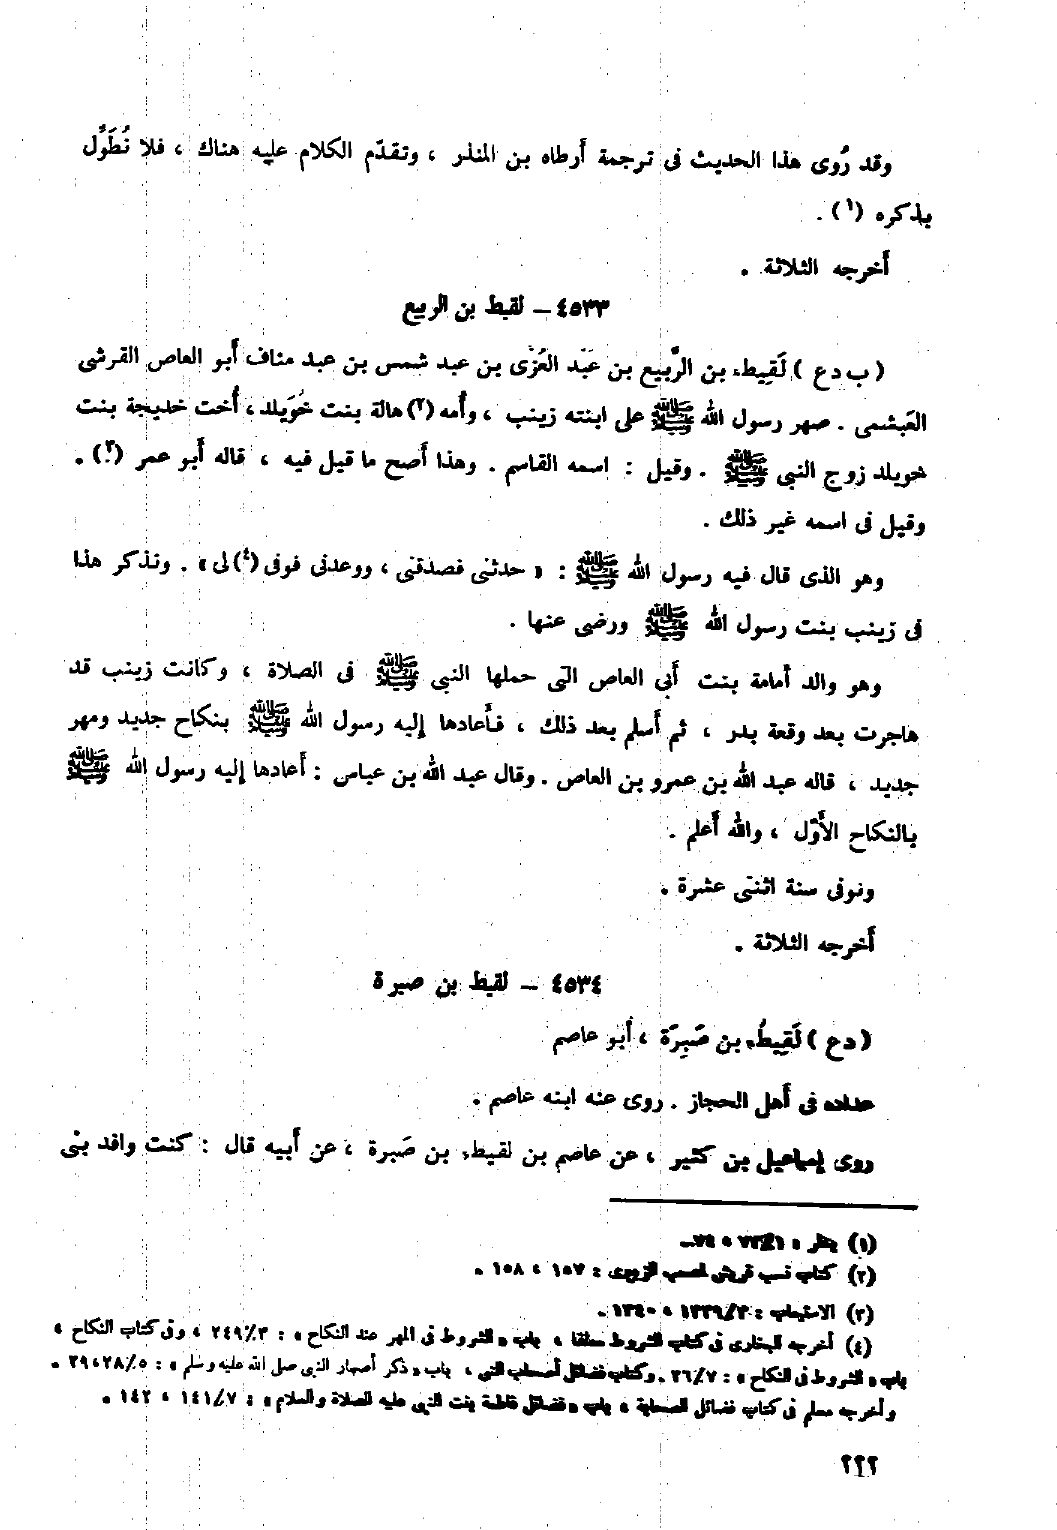 وقد رُوى هذا الحديث فى ترجمة أرطاه بن المنذر ، وتقدّم الكلام عليه هناك ، فلا نُطَوِّل
بذكره (١) .
أخرجه الثلاثة .
٤٥٣٣ – لقيط بن الربيع
( ب د ع ) لَقِيطُ بن الرَّبيع بن عَبْد العُزّى بن عبد شمس بن عبد مناف أبو العاص القرشى
العَبشمى . صهر رسول الله ﷺ على ابنته زينب ، وأُمه (٢) هالة بنت خُوَيلد ، أُخت خديجة بنت
خويلد زوج النبى ﷺ . وقيل : اسمه القاسم . وهذا أصح ما قيل فيه ، قاله أبو عمر (٣) .
وقيل فى اسمه غير ذلك .
وهو الذى قال فيه رسول الله ﷺ : « حدثنى فصدقنى ، ووعدنى فوفى (٤) لى » . ونذكر هذا
فى زينب بنت رسول الله ﷺ ورضى عنها .
وهو والد أُمامة بنت أبى العاص التى حملها النبى ﷺ فى الصلاة ، وكانت زينب قد
هاجرت بعد وقعة بدر ، ثم أسلم بعد ذلك ، فأعادها إليه رسول الله ﷺ بنكاح جديد ومهر
جديد ، قاله عبد الله بن عمرو بن العاص . وقال عبد الله بن عباس : أعادها إليه رسول الله ﷺ
بالنكاح الأوّل ، والله أعلم .
وتوفى سنة اثنتى عشرة .
أخرجه الثلاثة .
٤٥٣٤ – لقيط بن صبرة
( د ع ) لَقِيطُ بن صَبِرَة ، أبو عاصم
عداده فى أهل الحجاز . روى عنه ابنه عاصم .
روى إسماعيل بن كثير ، عن عاصم بن لقيط بن صَبرة ، عن أبيه قال : كنت وافد بنى
(١) ينظر : ٧٣/١ ، ٧٤ .
(٢) كتاب نسب قريش لمصعب الزبيرى : ١٥٧ ، ١٥٨ .
(٣) الاستيعاب : ١٣٣٩/٣ ، ١٣٤٠ .
(٤) أخرجه البخارى فى كتاب الشروط معلقا ، باب « الشروط فى المهر عند النكاح » : ٢٤٩/٣ ، وفى كتاب النكاح ،
باب « الشروط فى النكاح » : ٢٦/٧ . وكتاب فضائل أصحاب النبى ، باب « ذكر أصهار النبى صلى الله عليه وسلم » : ٢٨/٥ ، ٢٩ .
وأخرجه مسلم فى كتاب فضائل الصحابة ، باب « فضائل فاطمة بنت النبى عليه الصلاة والسلام » : ١٤١/٧ ، ١٤٢ .
٢٢٢